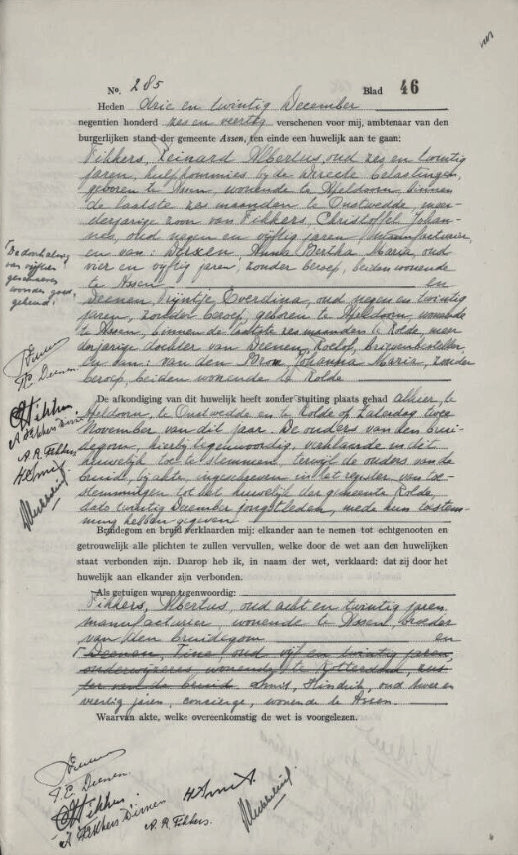 No. 285 Blad 46
Heden drie en twintig December
negentien honderd zes en veertig verschenen voor mij, ambtenaar van den
burgerlijken stand der gemeente Assen, ten einde een huwelijk aan te gaan:
Fikkers, Reinard Albertus, oud zes en twintig
jaren, hulpkommies bij de directe belastingen,
geboren te Assen, wonende te Apeldoorn, binnen
de laatste zes maanden te Onstwedde, meer-
derjarige zoon van Fikkers, Christoffel Johan-
nes, oud negen en vijftig jaren, manufacturier,
en van: Dirksen, Anna Bertha Maria, oud
vier en vijftig jaren, zonder beroep, beiden wonende
te Assen en
Deenen, Trijntje Everdina, oud negen en twintig
jaren, zonder beroep, geboren te Apeldoorn, wonende
te Assen, binnen de laatste zes maanden te Rolde, meer-
derjarige dochter van Deenen, Roelof, brievenbesteller,
en van: van den Bron, Johanna Maria, zonder
beroep, beiden wonende te Rolde
De doorhaling
van vijftien
gedrukte
woorden goed-
gekeurd.
T.E. Deenen
A.R. Fikkers
H. Smit
De afkondiging van dit huwelijk heeft zonder stuiting plaats gehad alhier, te
Apeldoorn, te Onstwedde en te Rolde op Zaterdag twee
November van dit jaar. De ouders van den brui-
degom, hierbij tegenwoordig, verklaarden in dit
huwelijk toe te stemmen, terwijl de ouders van de
bruid, bij akte, ingeschreven in het register van toe-
stemmingen tot het huwelijk der gemeente Rolde,
dato twintig December jongstleden, mede hun toestem-
ming hebben gegeven
Bruidegom en bruid verklaarden mij: elkander aan te nemen tot echtgenooten en
getrouwelijk alle plichten te zullen vervullen, welke door de wet aan den huwelijken
staat verbonden zijn. Daarop heb ik, in naam der wet, verklaard: dat zij door het
huwelijk aan elkander zijn verbonden.
Als getuigen waren tegenwoordig:
Fikkers, Albertus, oud acht en twintig jaren
manufacturier, wonende te Assen, broeder
van den bruidegom en
Deenen, Tine, oud vijf en twintig jaren,
onderwijzeres, wonende te Rotterdam, zus-
ter van de bruid. Smit, Hindrik, oud twee en
veertig jaren, concierge, wonende te Assen.
Waarvan akte, welke overeenkomstig de wet is voorgelezen.
T.E. Deenen
H. Smit
A.R. Fikkers